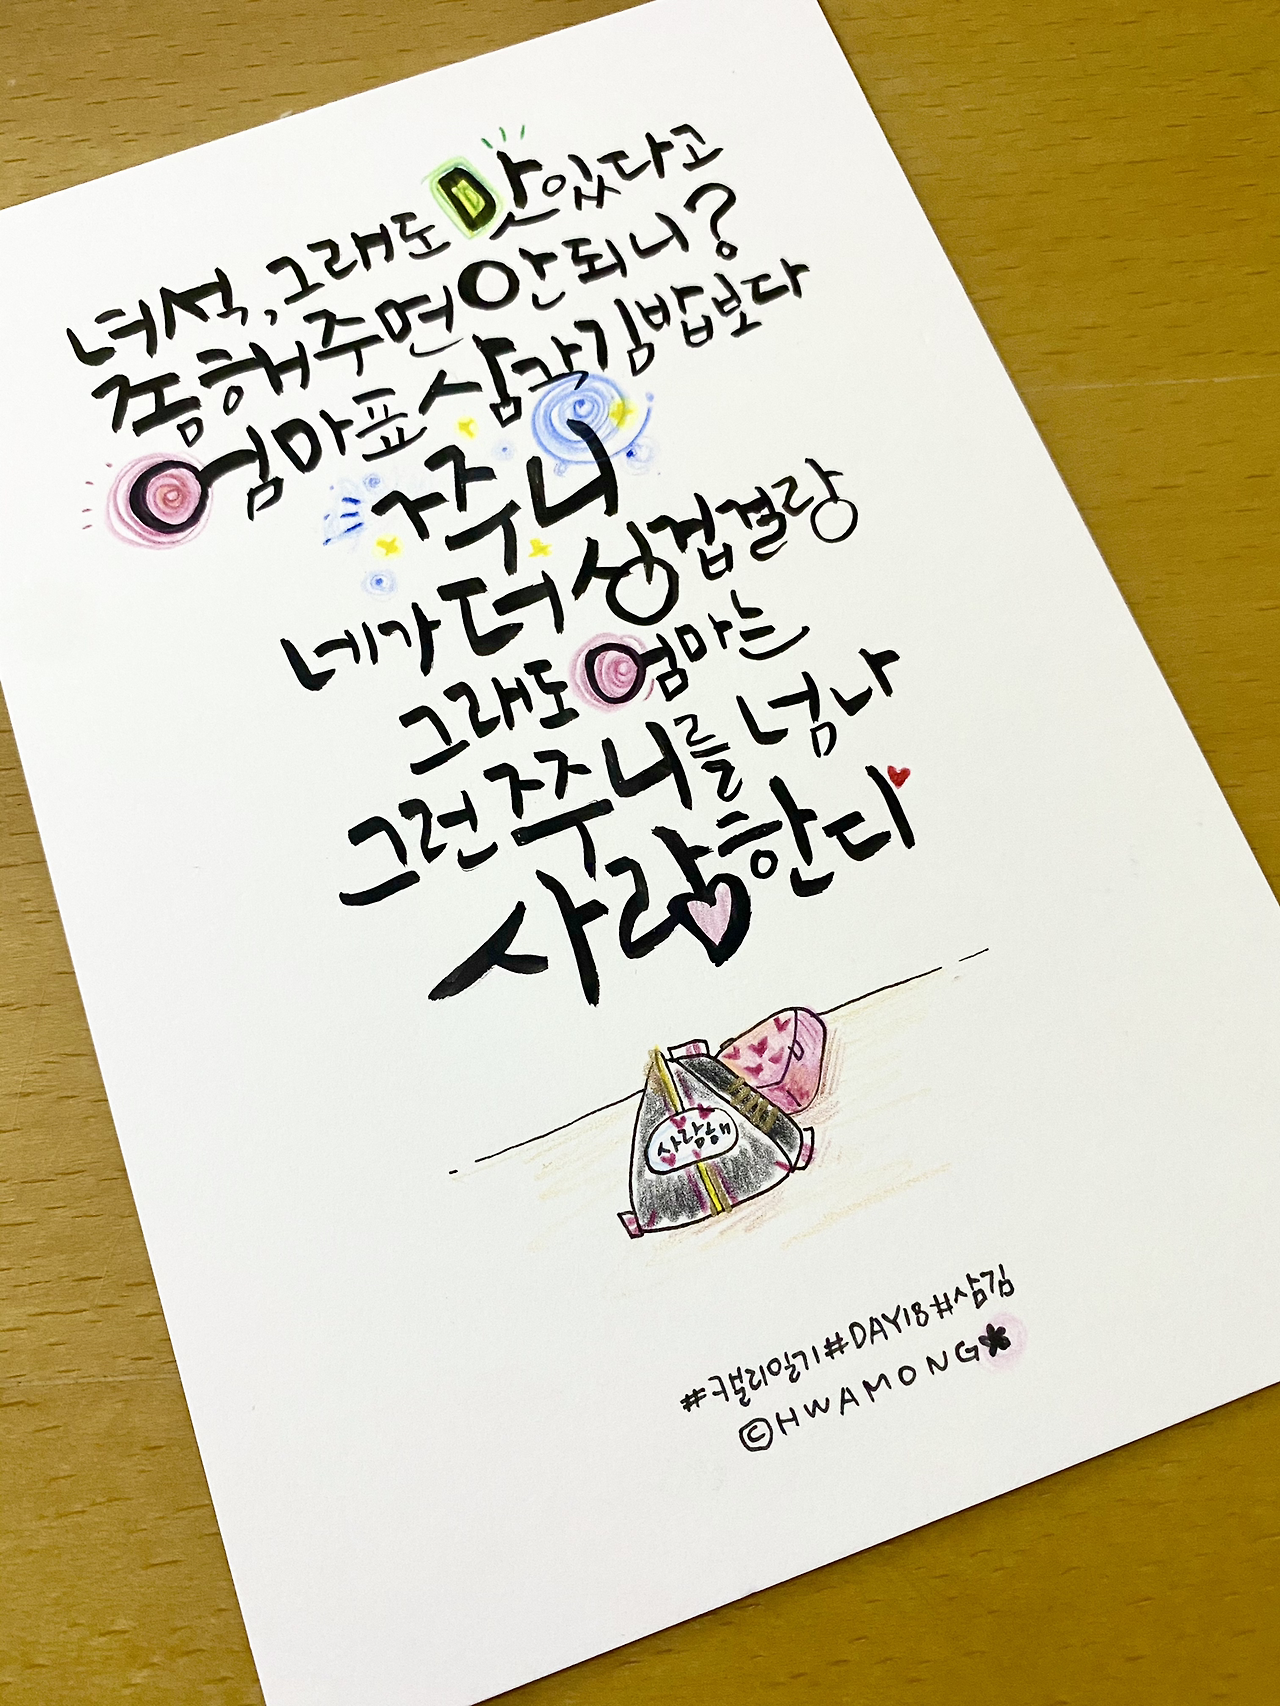 녀석, 그래도 맛있다고
좀 해주면 안되니?
엄마표 삼각김밥보다
쭈니
네가 더 싱겁걸랑
그래도 엄마는
그런 쭈니를 넘나
사랑한디
사랑해
#캘리일기#DAY18#삼김
©HWAMONG